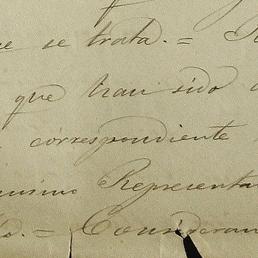 se trata. =
que han sido
correspondiente
mismo Representa
= Consideran